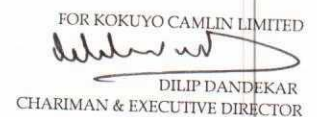 FOR KOKUYO CAMLIN LIMITED
DILIP DANDEKAR
CHARIMAN & EXECUTIVE DIRECTOR